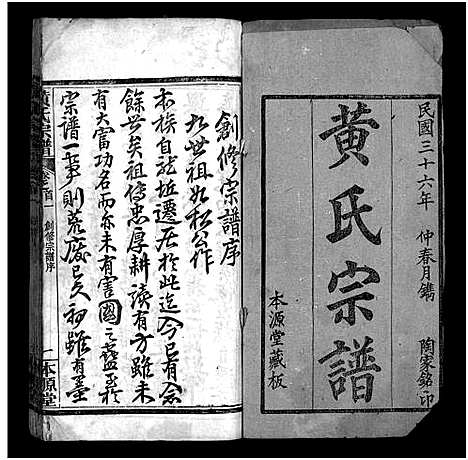 民國三十六年 仲春月鐫 陶家銘印
黃氏宗譜
本源堂藏板
創修宗譜序
九世祖如松公作
本族自龍坵遷居於此迄今已有念
餘世矣祖傳忠厚耕讀有方雖未
有大富功名而亦未有害國之蠢至於
宗譜一事則荒廢已久初雖有墨
黃氏宗譜 卷之首一 創修宗譜序 一本源堂